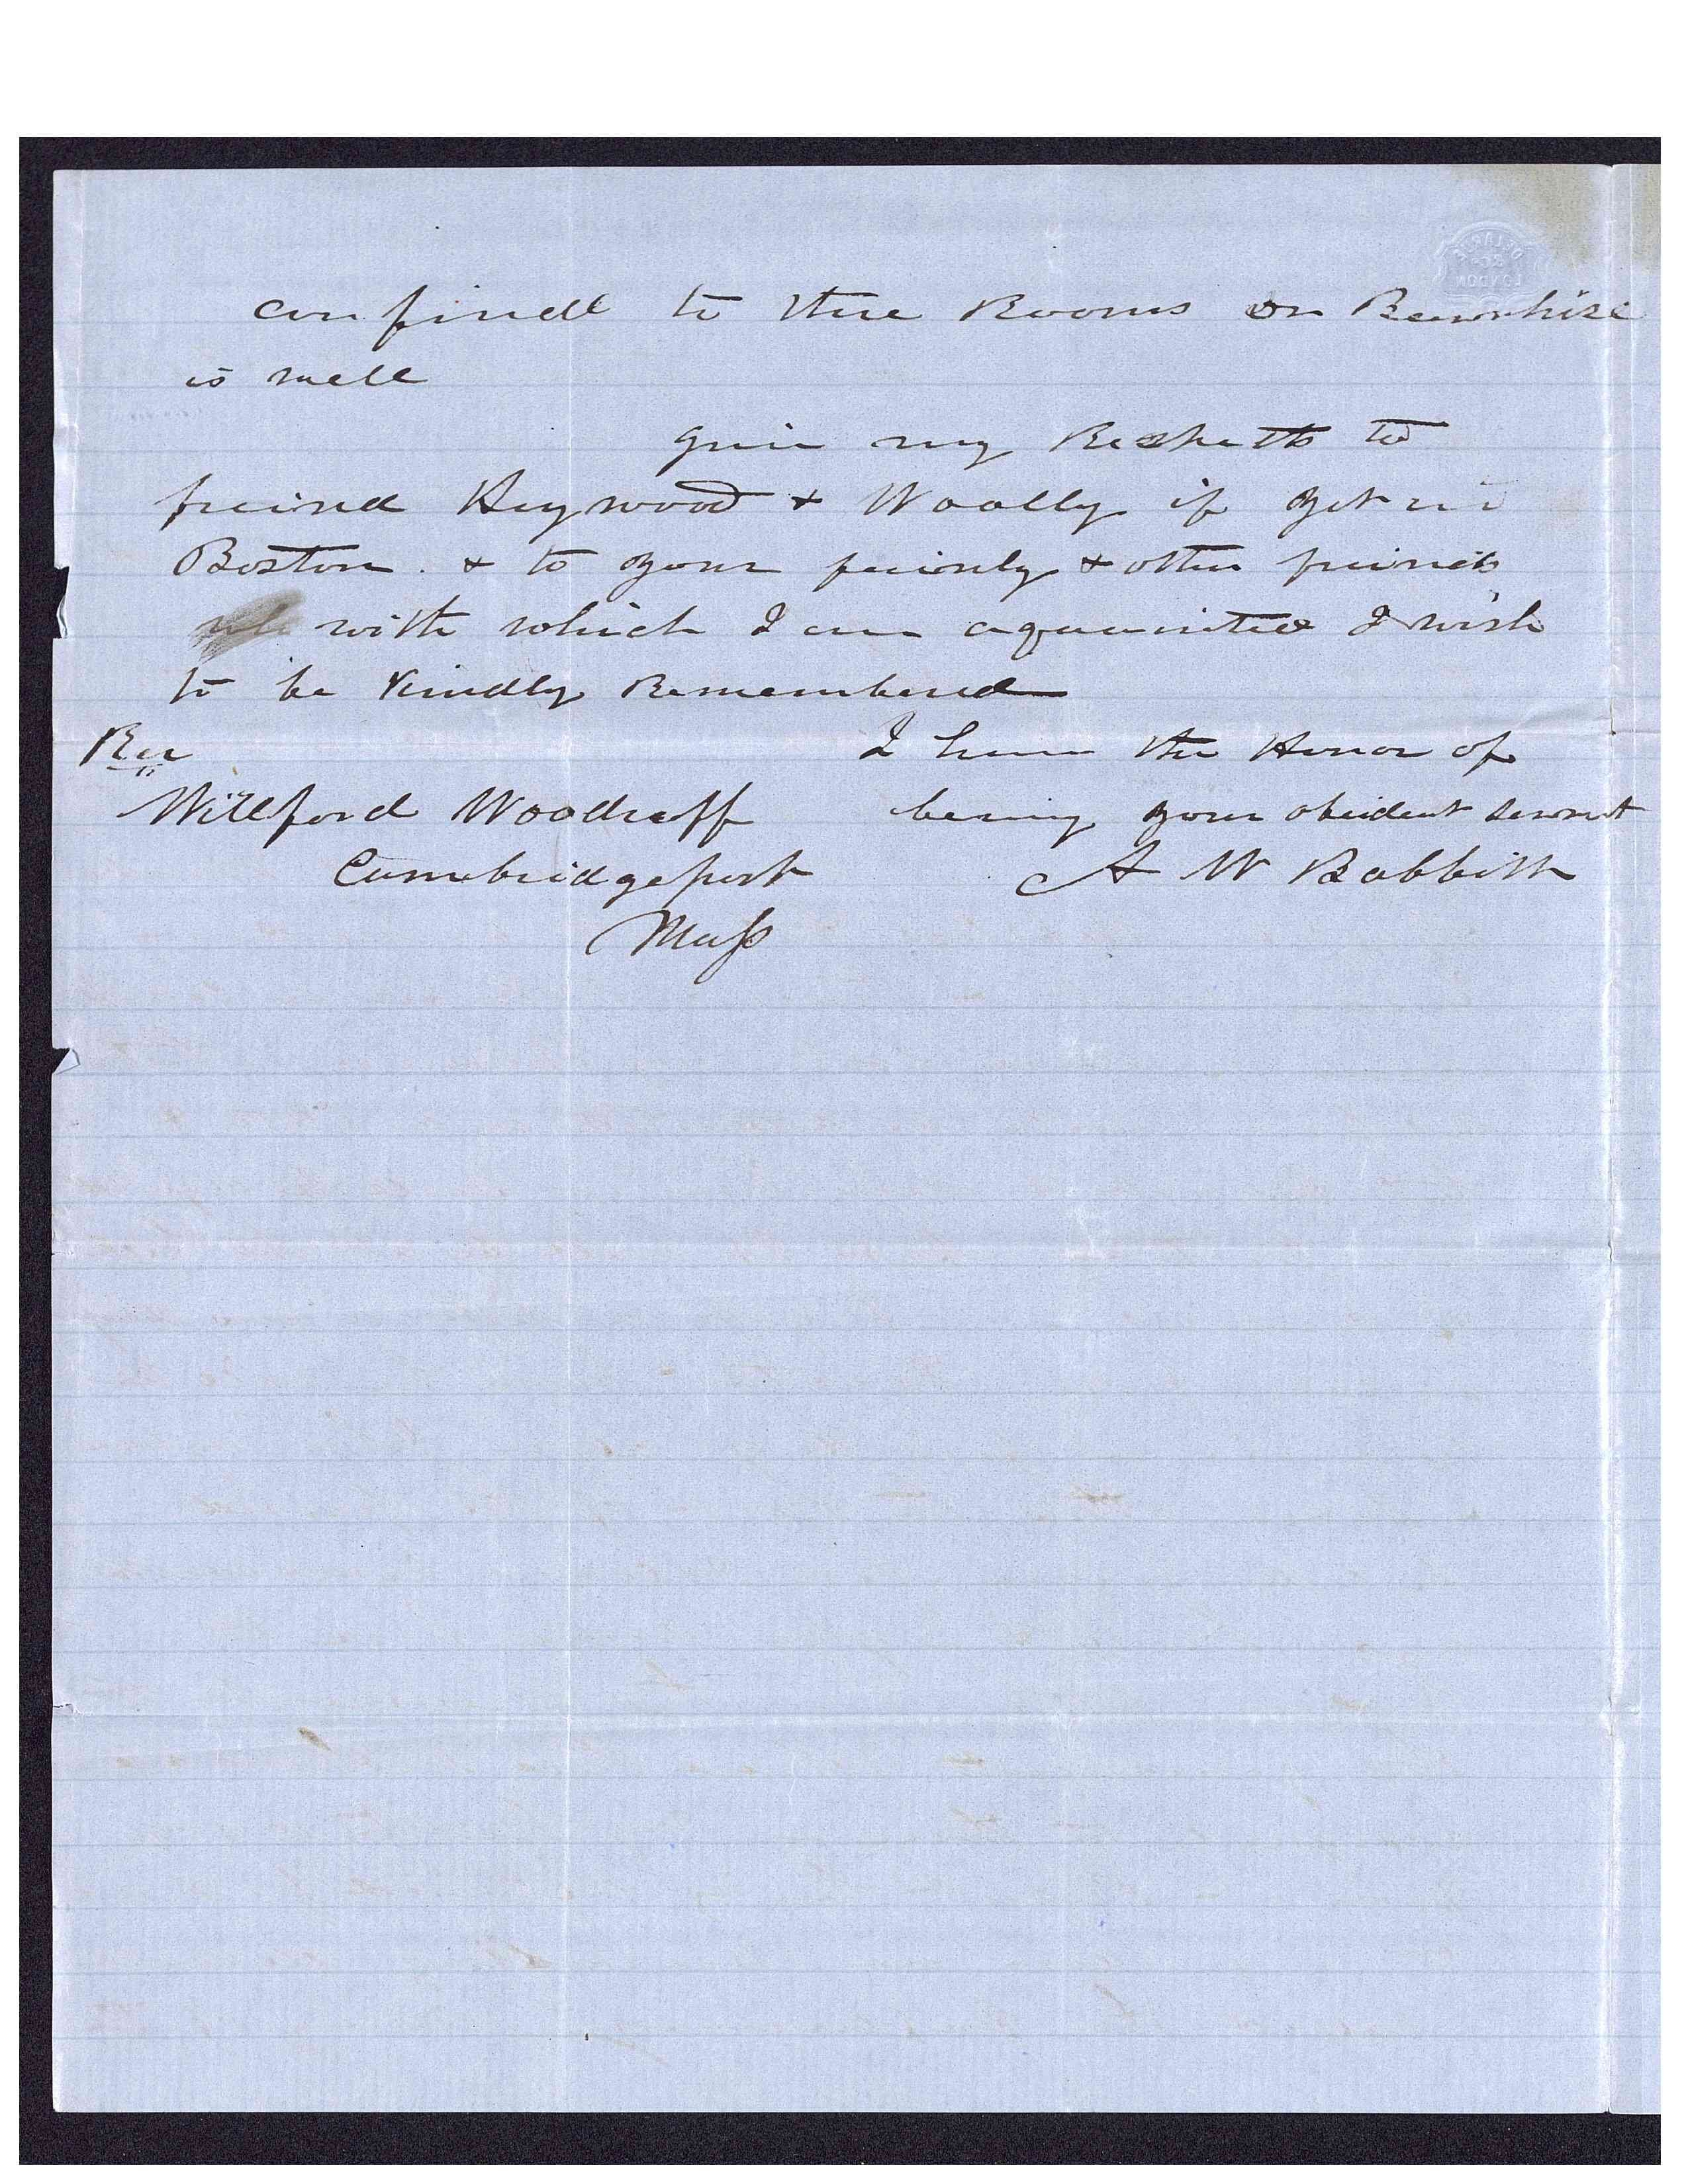 confined to thire Rooms Dr Bernhisel
is well
give my Respects to
freind Heywood & Woolly if yet in
Boston. & to your family & other freinds
with which I am aquainted I wish
to be kindly Remembered
Rev
I have the Honor of
Willford Woodruff
being your obeident servnt
Cambridgeport
A W Babbitt
Mass